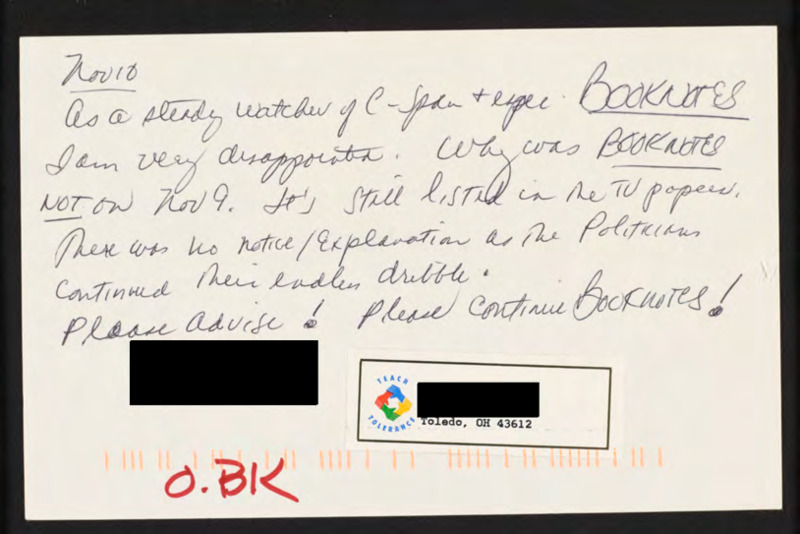 Nov 10
As a steady watcher of C-Span + espec. BOOKNOTES
I am very disappointed. Why was BOOKNOTES
NOT on Nov 9. It's still listed in the TV papers.
There was no notice/Explanation as the Politicians
continued their endless dribble.
Please Advise! Please continue BOOKNOTES!
TEACH
TOLERANCE
Toledo, OH 43612
O.BK